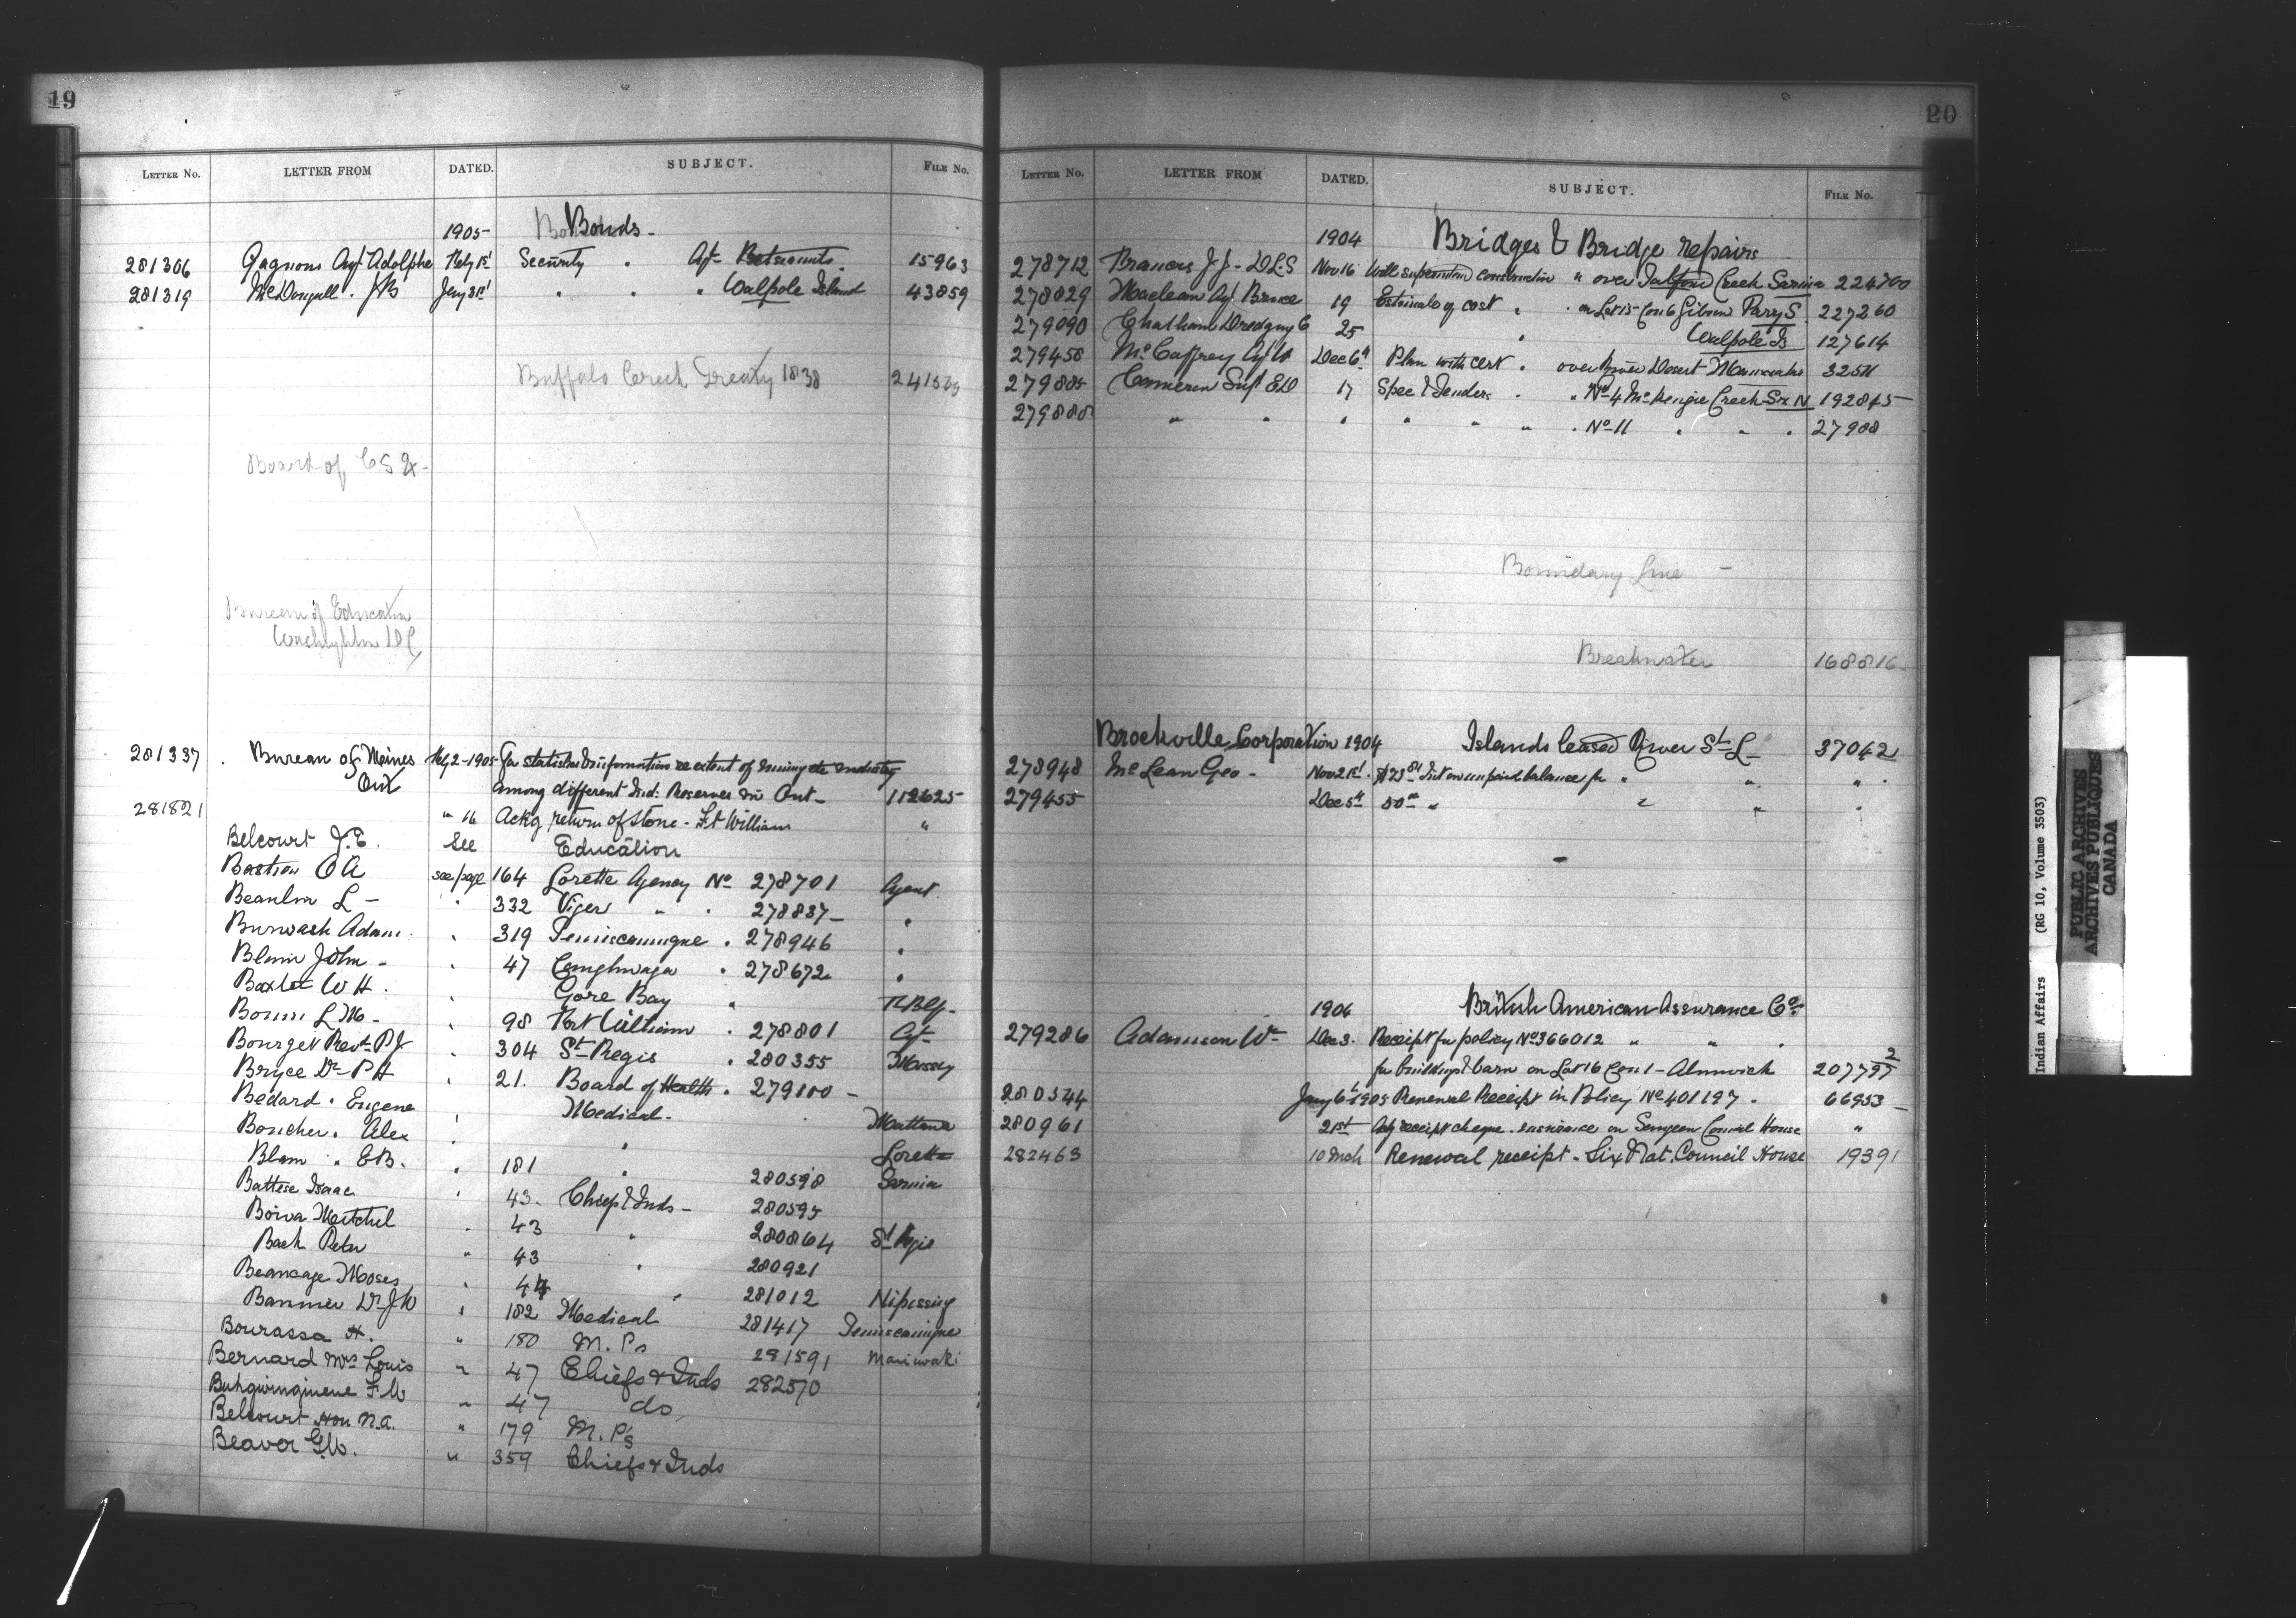 19
LETTER NO. LETTER FROM DATED. SUBJECT. FILE NO.
1905- Bonds-
281306 Gagnons Agt Adolphe Feby 1st Security . Agt Betsiamits. 15963
281319 McDougall . JB Jany 31st " . " Walpole Island 43859
Buffalo Creek Treaty 1838
Board of CS Ex-
Bureau of Education
Washington DC
281337 . Bureau of Meines Feb 2-1905- for statistics & information re extent of mining etc industry
Ont among different Ind: Reserves in Ont- 112625
281821 " 16 Ackg return of stone - Ft William "
Belcourt J.E. See Education
Bastien O A see page 164 Lorette Agency No 278701 Agent
Beaulieu L - . 332 Viger " . 278837- .
Burwash Adam . 319 Temiscamingue . 278946 .
Blanc John - . 47 Caughnawaga . 278672 .
Baxter W H . . Gore Bay "
Bonin L M- . 98 Fort William . 278801 Agt
Bourget Revd PJ . 304 St Regis . 280355 Massey
Bryce Dr P H . 21. Board of Health . 279100 -
Bedard . Eugene . Medical- Mattawa
Boucher . Alex . " Lorette
Blam . EB. . 181 280598 Sarnia
Battese Isaac . 43- Chiefs & Inds- 280595
Boiva Mitchel . 43 " 280864 St Regis
Back Peter " 43 . 280921
Beaucage Moses . 44 " 281012 Nipissing
Bannier Dr JW . 182 Medical 281417 Temiscamigue
Bourassa H. " 180 M. Ps 281591 Maniwaki
Bernard Mrs Louis " 47 Chiefs & Inds 282570
Buhgwinginene F.W " 47 do
Belcourt Hon N.A. " 179 M. P's
Beaver G.W. " 359 Chiefs & Inds
20
LETTER NO. LETTER FROM DATED. SUBJECT. FILE NO.
1904 Bridges & Bridge repairs
278712 Francis J J - DLS Nov 16 Will superintend construction " over Talfourd Creek Sarnia 224700
278829 Maclean Agt Bruce 19 Estimate of cost " . on Lot 15 Con 6 Gibson Parry S. 227260
279090 Chatham Dredging C 25 " Walpole Is 127614
279458 McCaffrey Agt W Dec 6th Plan with cert . over River Desert Maniwaki 32511
279885 Cameron Supt ED 17 Spec & Tenders . " No 4 McKenzie Creek Six N 192845
279888 " " . " " " . No 11 . " . 27988
Boundary Line -
Breakwater 168816
Brockville Corporation 1904 Islands leased River St L 37042
278948 McLean Geo - Nov 21st . $23.81 Int on unpaid balance for " " " .
279455 Dec 5th 80.00 " " " .
1904 British American Assurance Co.
279286 Adamson Wm Dec 3. Receipt for policy No 366012 " " .
for buildings & barn on Lot 16 Con 1 - Alnwick 20779
280544 Jany 6th 1905 Renewal Receipt in Policy No 401197 . 66953
280961 21st Ackg receipt cheque - insurance on Saugeen Council House "
282463 10 Mch Renewal receipt - Six Nat. Council House 19391
Indian Affairs (RG 10, Volume 3503)
PUBLIC ARCHIVES
ARCHIVES PUBLIQUES
CANADA